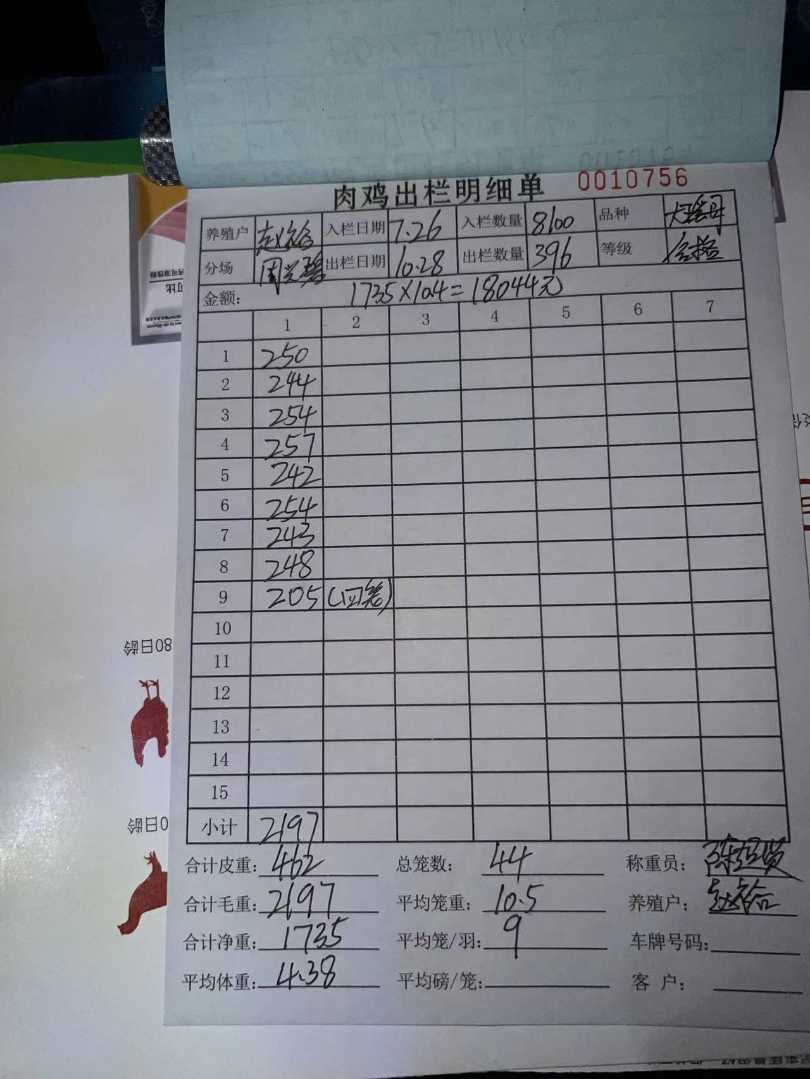 肉鸡出栏明细单 0010756
养殖户 入栏日期 7.26 入栏数量 8100 品种
分场 出栏日期 10.28 出栏数量 396 等级 合格
金额: 1735×10.4=18044元
1 2 3 4 5 6 7
1 250
2 244
3 254
4 257
5 242
6 254
7 243
8 248
9 205 (四笼)
10
11
12
13
14
15
小计 2197
合计皮重: 462 总笼数: 44 称重员:
合计毛重: 2197 平均笼重: 10.5 养殖户:
合计净重: 1735 平均笼/羽: 9 车牌号码:
平均体重: 4.38 平均磅/笼: 客户:
80日龄
0日龄